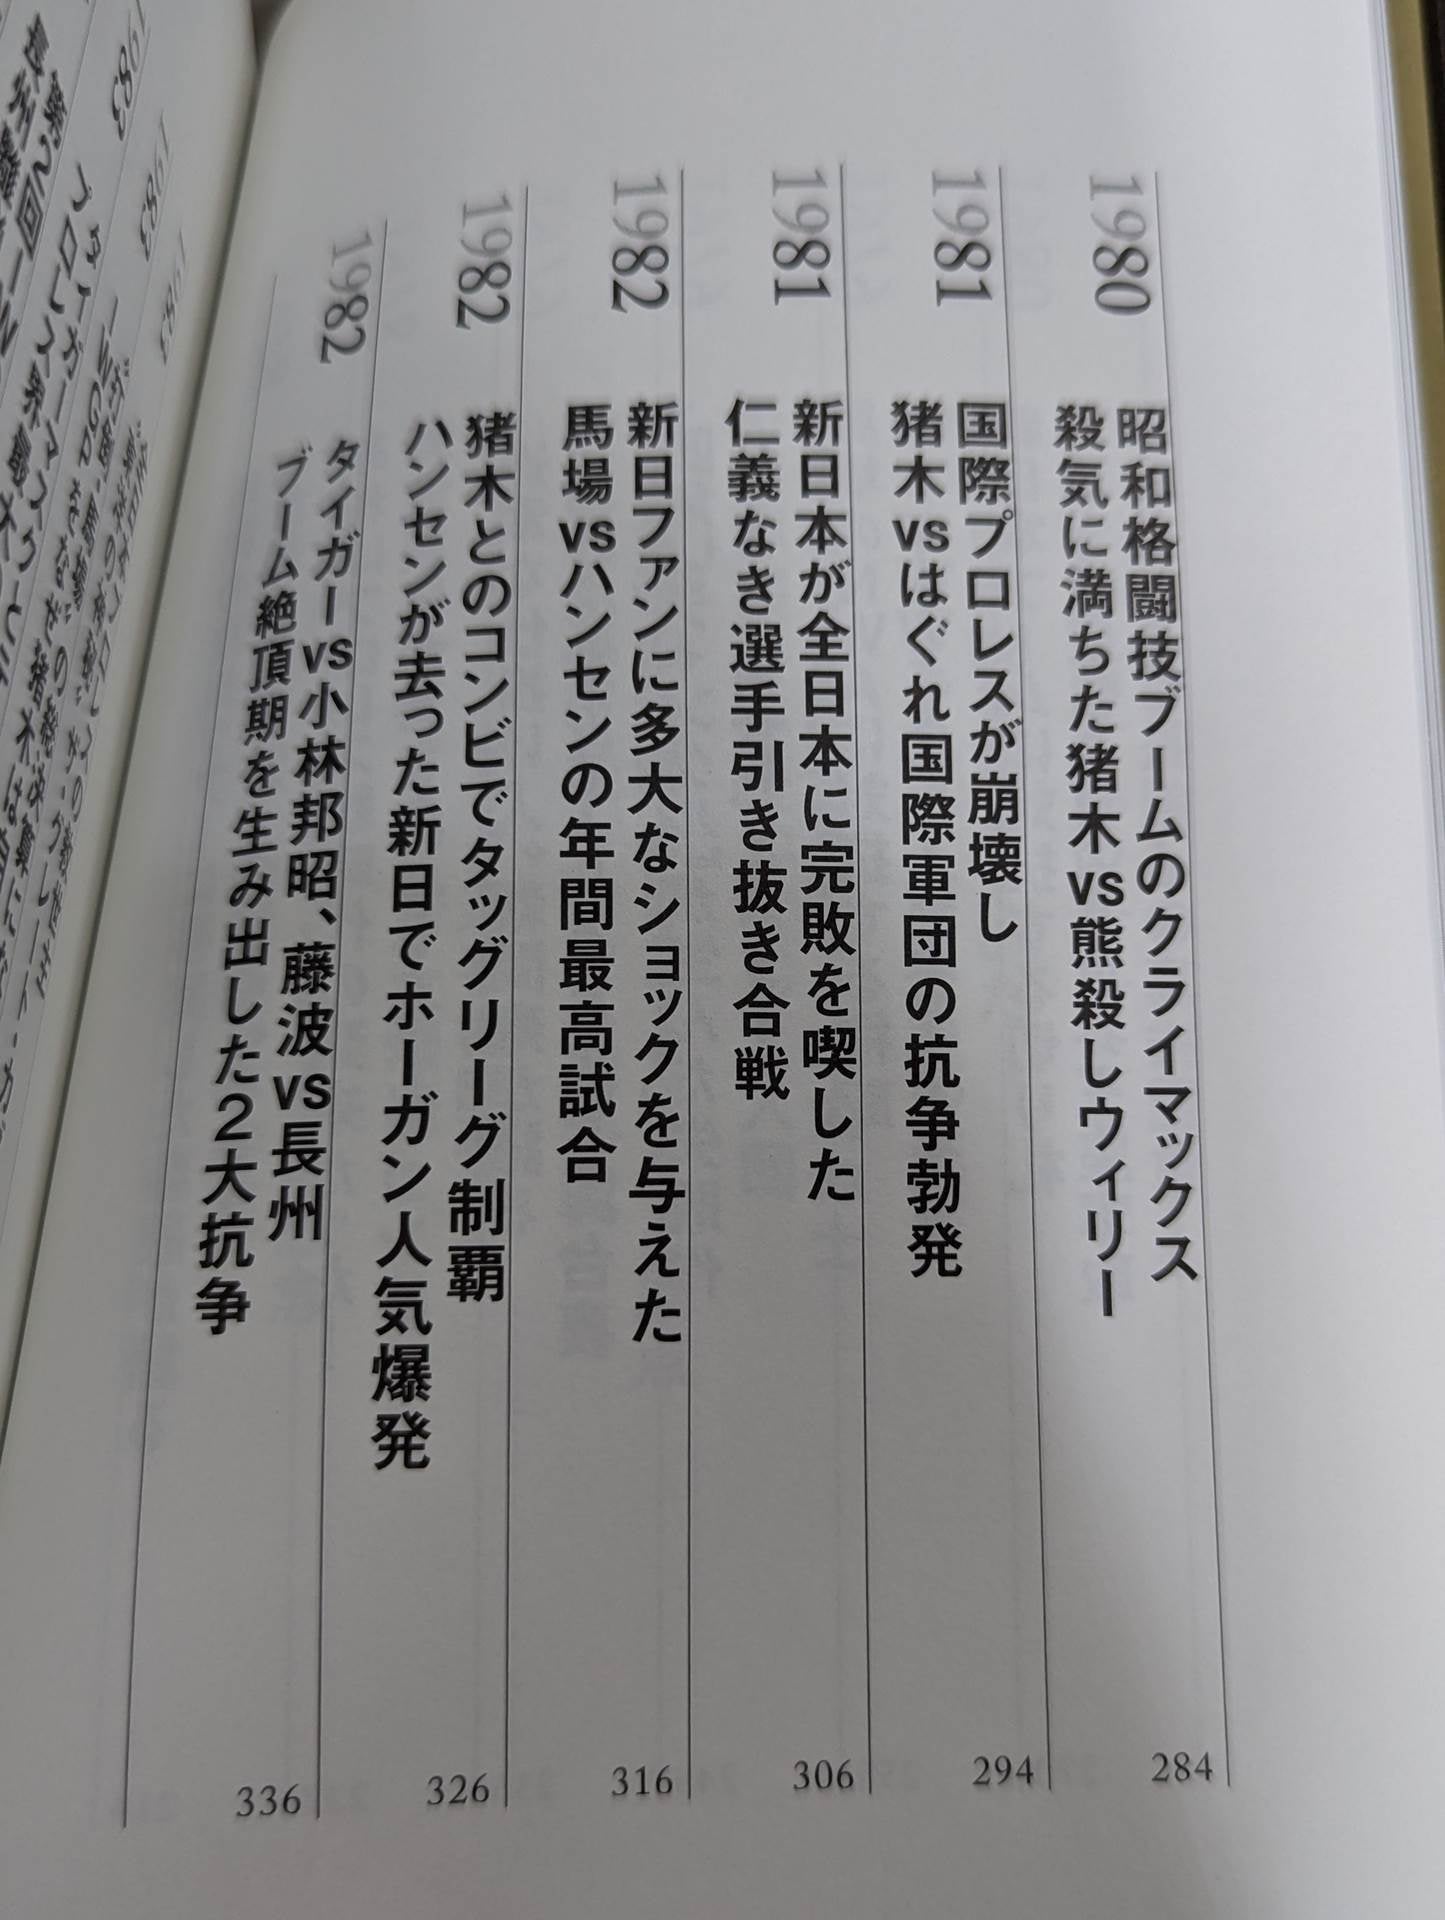 1980
昭和格闘技ブームのクライマックス
殺気に満ちた猪木vs熊殺しウィリー
284
1981
国際プロレスが崩壊し
猪木vsはぐれ国際軍団の抗争勃発
294
1981
新日本が全日本に完敗を喫した
仁義なき選手引き抜き合戦
306
1982
新日ファンに多大なショックを与えた
馬場vsハンセンの年間最高試合
316
1982
猪木とのコンビでタッグリーグ制覇
ハンセンが去った新日でホーガン人気爆発
326
1982
タイガーvs小林邦昭、藤波vs長州
ブーム絶頂期を生み出した2大抗争
336
1983
1983
1983